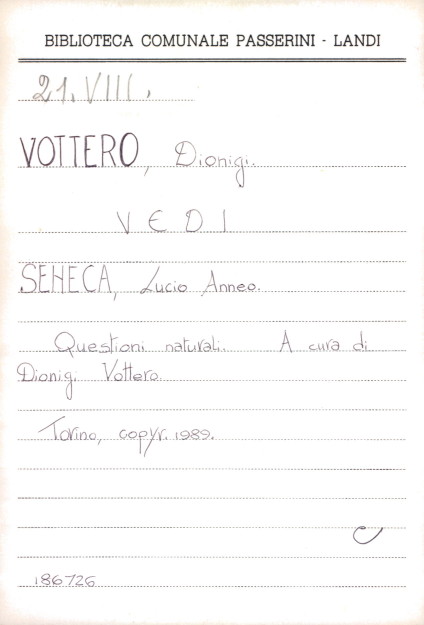 BIBLIOTECA COMUNALE PASSERINI - LANDI
21.VIII.
VOTTERO, Dionigi.
VEDI
SENECA, Lucio Anneo.
Questioni naturali. A cura di
Dionigi Vottero.
Torino, copyr. 1989.
186726